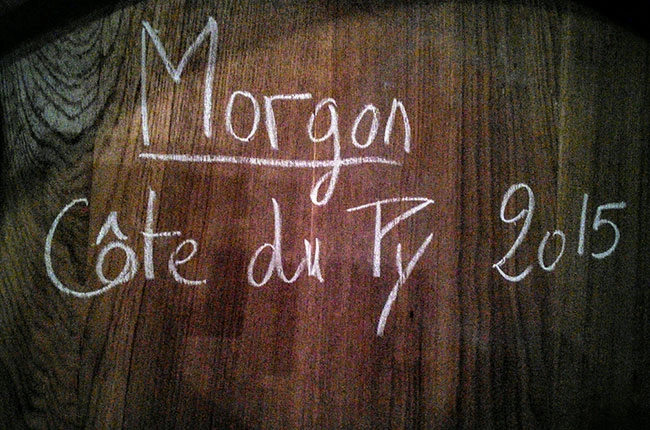 Morgon
Côte du Py 2015